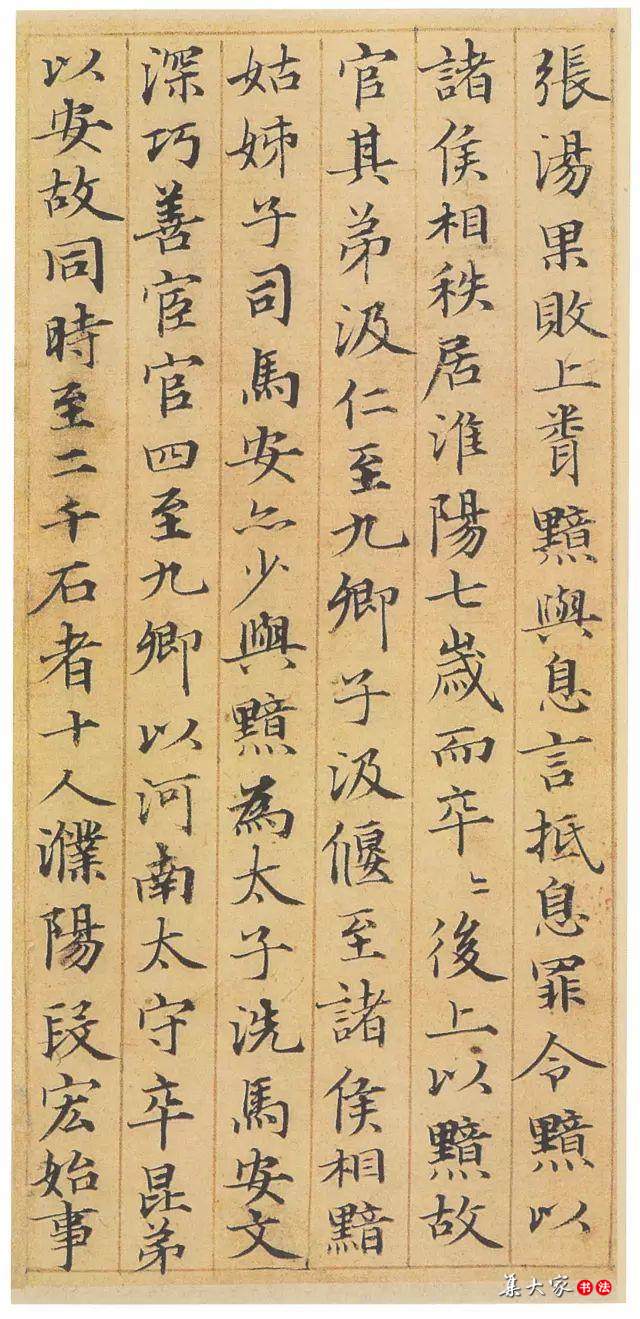 張湯果敗上聞黯與息言抵息罪令黯以
諸侯相秩居淮陽七歲而卒〻後上以黯故
官其弟汲仁至九卿子汲偃至諸侯相黯
姑姊子司馬安亦少與黯為太子洗馬安文
深巧善宦官四至九卿以河南太守卒昆弟
以安故同時至二千石者十人濮陽段宏始事
集大家书法